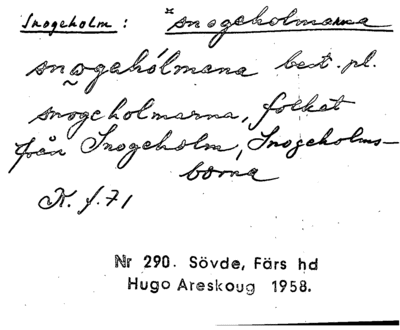 Snogeholm : *snogeholmarna
snogahólmana best. pl.
snogeholmarna, folket
från Snogeholm, Snogeholms-
borna
K. f. 71
Nr 290. Sövde, Färs hd
Hugo Areskoug 1958.